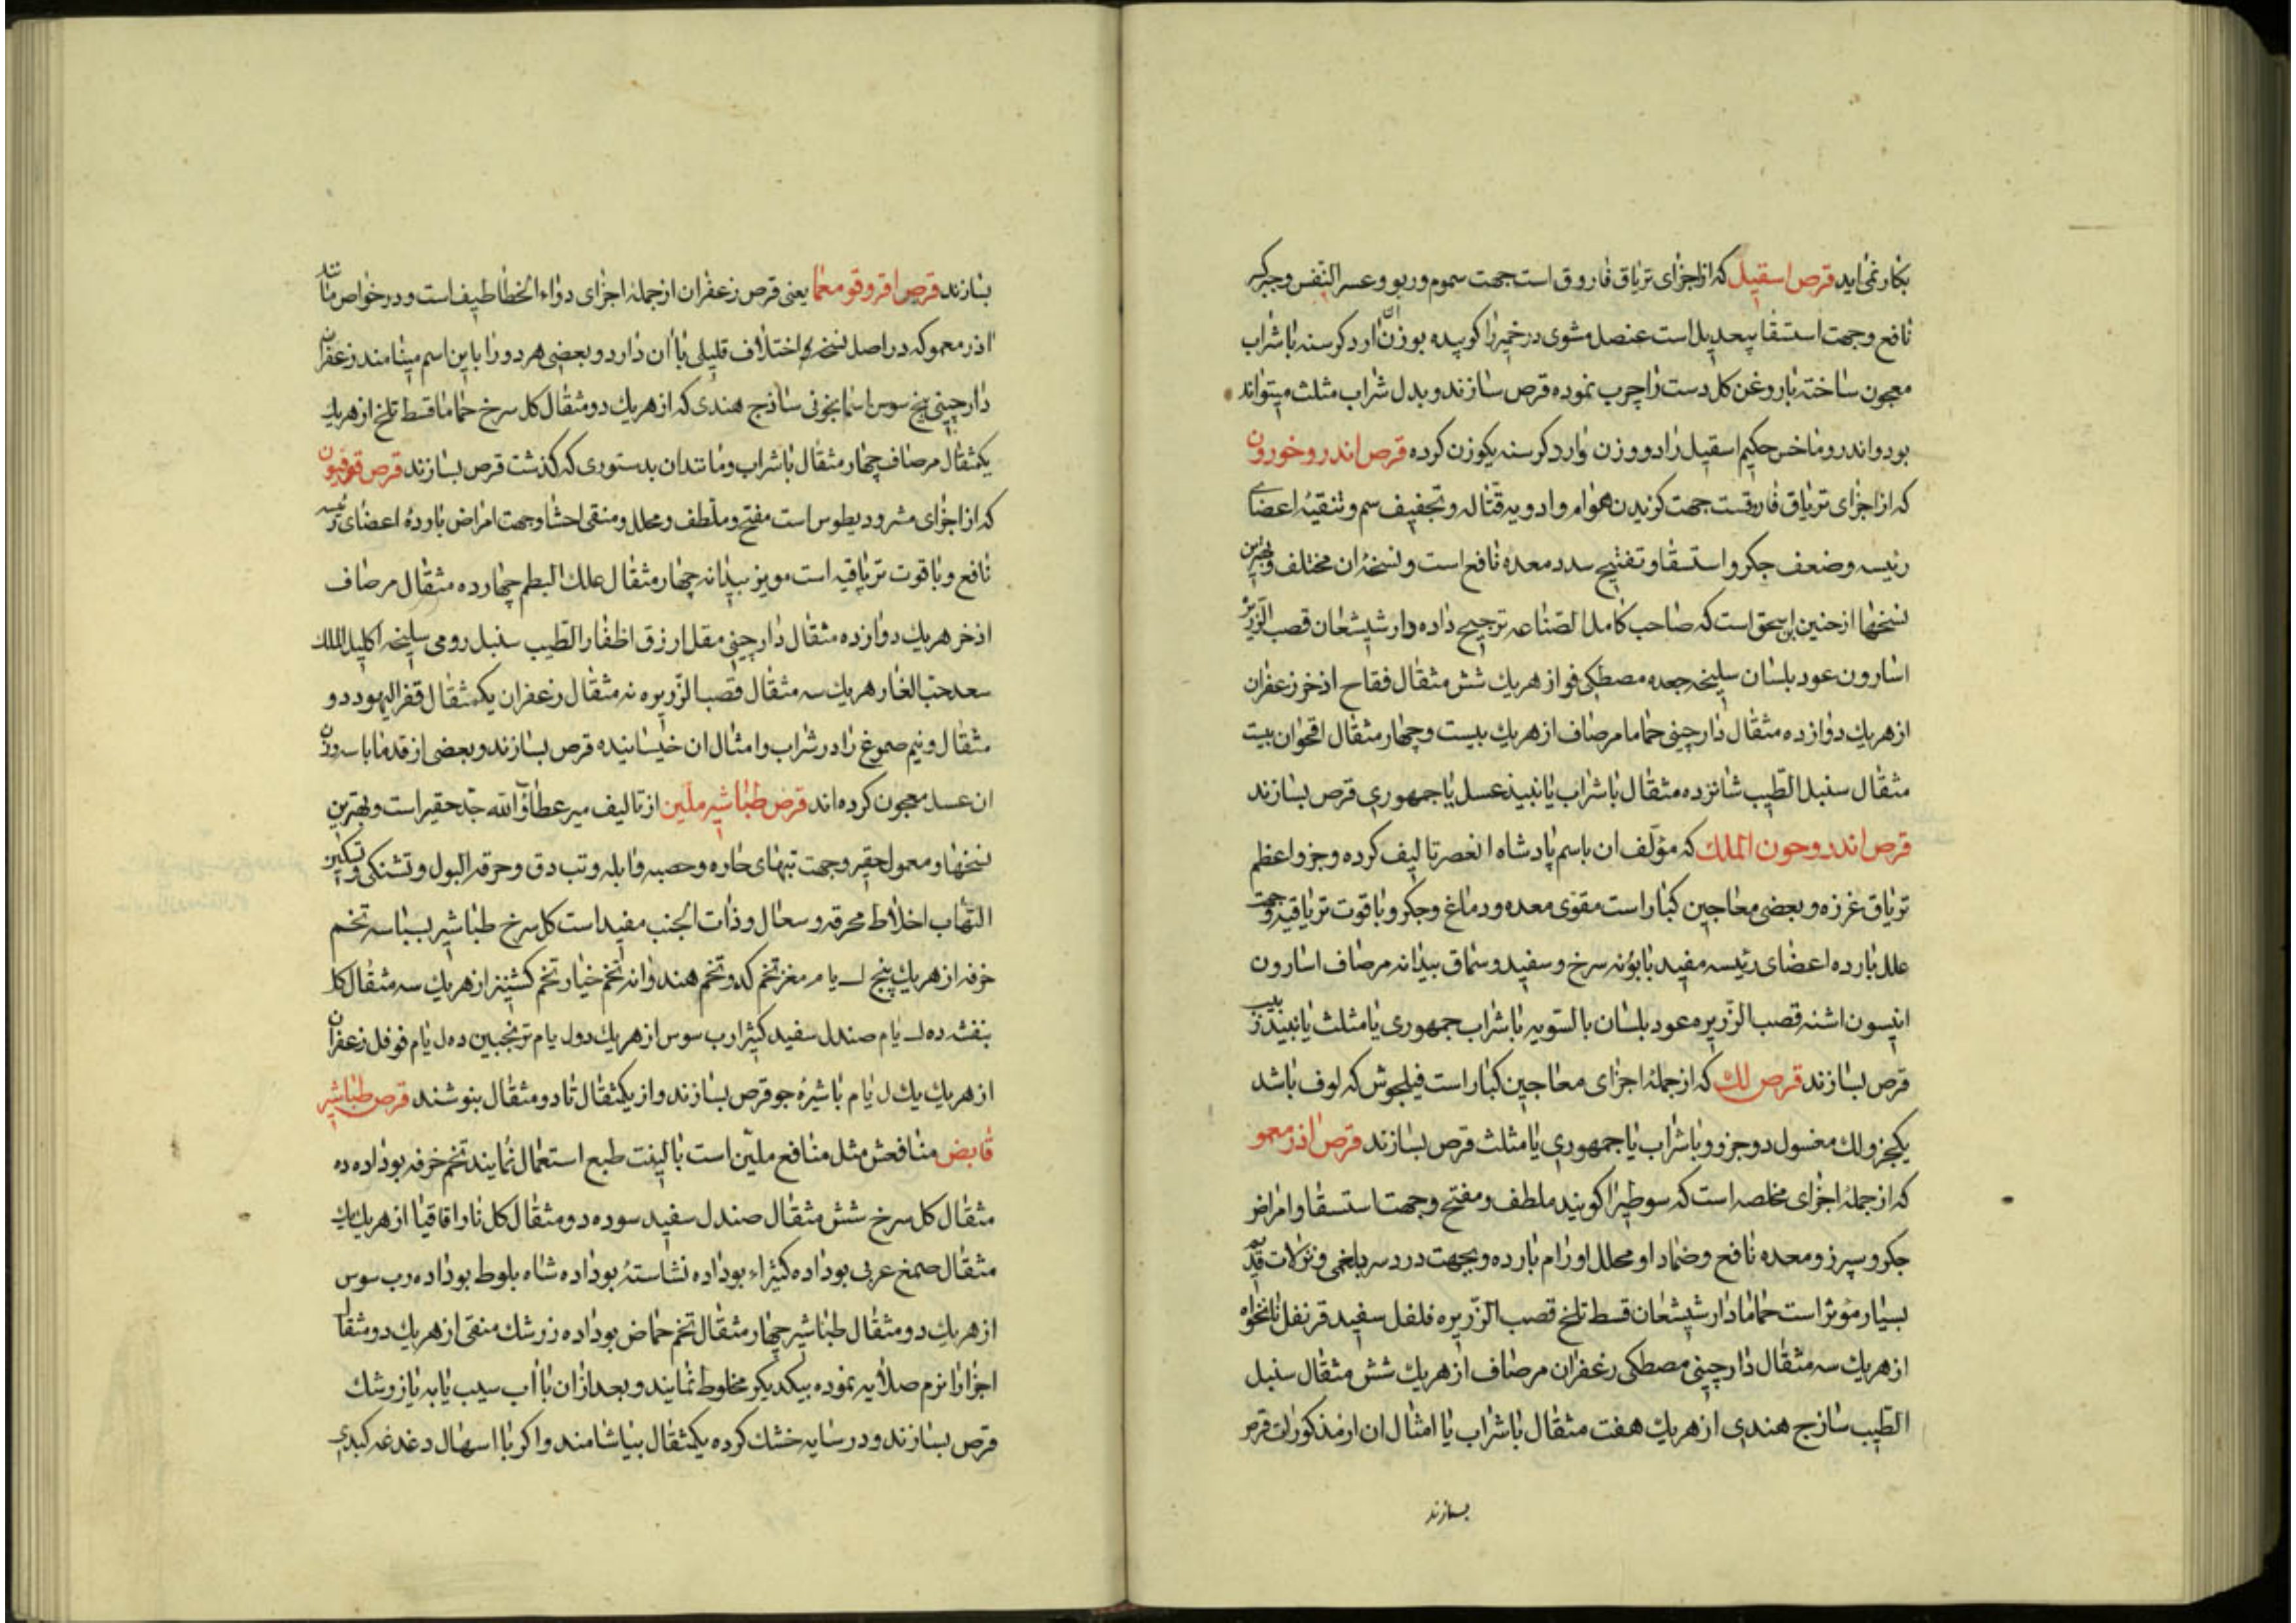 بكار نمی اید قرص اسقیل كه از اجزای تریاق فاروق است جهت سموم و ربو و عسر النفس و جكر
نافع و جهت استسقا بیعدیل است عنصل مشوی در خمیر را كوبیده بوزن ان ارد كرسنه با شراب
معجون ساخته با روغن كل دست را چرب نموده قرص سازند و بدل شراب مثلث میتواند
بود و اندروماخس حكیم اسقیل را دو وزن و ارد كرسنه یكوزن كرده قرص اندروخورون
كه از اجزای تریاق فاروقست جهت كزیدن هوام و ادویه قتاله و تجفیف سم و تنقیهٔ اعضای
رئیسه و ضعف جكر و استسقا و تفتیح سدد معده نافع است و نسخهٔ ان مختلف و بهترین
نسخها از حنین بن اسحق است كه صاحب كامل الصناعه ترجیح داده دارشیشعان قصب الزریره
اسارون عود بلسان سلیخه جعده مصطكی فو از هریك شش مثقال فقاح اذخر زعفران
از هریك دوازده مثقال دارچینی حماما مرصاف از هریك بیست و چهار مثقال اقحوان بیت
مثقال سنبل الطیب شانزده مثقال با شراب یا نبیذ عسل یا جمهوری قرص بسازند
قرص اندروحون الملك كه مؤلف ان باسم پادشاه العصر تالیف كرده و جزو اعظم
تریاق غرزه و بعضی معاجین كبار است مقوی معده و دماغ و جكر و با قوت تریاقیه و جهت
علل بارده اعضای رئیسه مفید بابونه سرخ و سفید و سماق بیدانه مرصاف اسارون
انیسون اشنه قصب الزریره عود بلسان بالسویه با شراب جمهوری یا مثلث یا نبیذ زبیب
قرص بسازند قرص لك كه از جملهٔ اجزای معاجین كبار است فیلجوش كه لوف باشد
یكجزو لك مغسول دو جزو و با شراب یا جمهوری یا مثلث قرص بسازند قرص اذرمعمو
كه از جملهٔ اجزای مخلصه است كه سوطیرا كویند ملطف و مفتح و جهت استسقا و امراض
جكر و سپرز و معده نافع و ضماد او محلل اورام بارده و بجهت درد سر بلغمی و نزلات قدیم
بسیار مؤثر است حماما دارشیشعان قسط تلخ قصب الزریره فلفل سفید قرنفل نانخواه
از هریك سه مثقال دارچینی مصطكی زعفران مرصاف از هریك شش مثقال سنبل
الطیب ساذج هندی از هریك هفت مثقال با شراب یا امثال ان از مذكورات قرص
بسازند
بسازند قرص اقروقومعما یعنی قرص زعفران از جملهٔ اجزای دواء الخطاطیف است و در خواص مانند
اذرمعمو كه در اصل نسخه اختلاف قلیلی با ان دارد و بعضی هر دو را باین اسم مینامند زعفران
دارچینی بیخ سوس اسمانجونی ساذج هندی كه از هریك دو مثقال كل سرخ حماما قسط تلخ از هریك
یكمثقال مرصاف چهار مثقال با شراب و مانند ان بدستوری كه كذشت قرص بسازند قرص قوفیون
كه از اجزای مشرودیطوس است مفتح و ملطف و محلل و منقی احشا و جهت امراض باردهٔ اعضای رئیسه
نافع و با قوت تریاقیه است مویز بیدانه چهار مثقال علك البطم چهارده مثقال مرصاف
اذخر هریك دوازده مثقال دارچینی مقل ازرق اظفار الطیب سنبل رومی سلیخه اكلیل الملك
سعد حب الغار هریك سه مثقال قصب الزریره نه مثقال زعفران یكمثقال قفر الیهود دو
مثقال و نیم صموغ را در شراب و امثال ان خیسانیده قرص بسازند و بعضی از قدما با سه وزن
ان عسل معجون كرده اند قرص طباشیر ملین از تالیف میر عطاؤ الله جد حقیر است و بهترین
نسخها و معمول حقیر و جهت تبهای حاره و حصبه و ابله و تب دق و حرقه البول و تشنكی و تسكین
التهاب اخلاط محرقه و سعال و ذات الجنب مفید است كل سرخ طباشیر بسباسه تخم
خرفه از هریك پنج ل یا م مغز تخم كدو تخم هندوانه تخم خیار تخم كشنیز از هریك سه مثقال كل
بنفشه ده ل یا م صندل سفید كثیرا رب سوس از هریك دو ل یا م ترنجبین ده ل یا م فوفل زعفران
از هریك یك ل یا م با شیرهٔ جو قرص بسازند و از یكمثقال تا دو مثقال بنوشند قرص طباشیر
قابض منافعش مثل منافع ملین است با لینت طبع استعمال نمایند تخم خرفه بوداده ده
مثقال كل سرخ شش مثقال صندل سفید سوده دو مثقال كلنار اقاقیا از هریك یك
مثقال صمغ عربی بوداده كثیراء بوداده نشاسته بوداده شاه بلوط بوداده رب سوس
از هریك دو مثقال طباشیر چهار مثقال تخم حماض بوداده زرشك منقی از هریك دو مثقال
اجزا را نرم صلایه نموده بیكدیكر مخلوط نمایند و بعد از ان با اب سیب یا به یا زرشك
قرص بسازند و در سایه خشك كرده یكمثقال بیاشامند و اكر با اسهال دغدغه كبدی